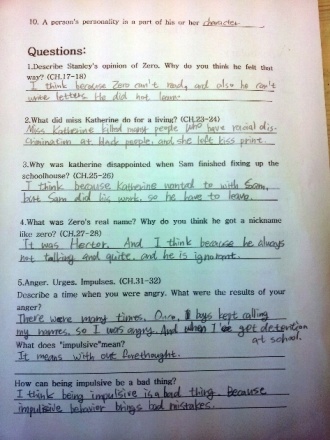 10. A person's personality in a part of his or her character
Questions:
1.Describe Stanley's opinion of Zero. Why do you think he felt that
way? (CH.17-18)
I think because Zero can't read, and also he can't
write letters. He did not learn.
2.What did miss Katherine do for a living? (CH.23-24)
Miss Katherine killed many people who have racial dis-
crimination at black people, and she left kiss print.
3.Why was katherine disappointed when Sam finished fixing up the
schoolhouse? (CH.25-26)
I think because Katherine wanted to with Sam,
but Sam did his work, so he have to leave.
4.What was Zero's real name? Why do you think he got a nickname
like zero? (CH.27-28)
It was Hector. And I think because he always
not talking and quite, and he is ignorant.
5.Anger. Urges. Impulses. (CH.31-32)
Describe a time when you were angry. What were the results of your
anger?
There were many times. boys kept calling
my names, so I was angry. And when I get detention
at school.
What does "impulsive"mean?
It means with out forethought.
How can being impulsive be a bad thing?
I think being impulsive is a bad thing because
impulsive behavior brings bad mistakes.